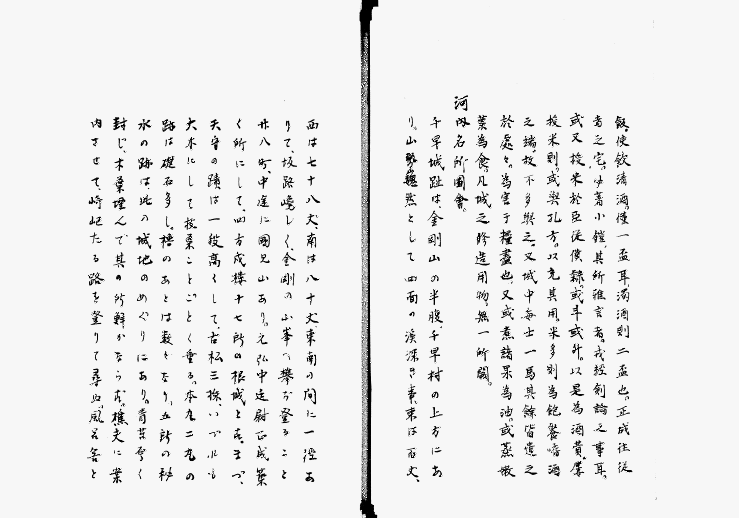 飯使飲清酒僅一盃耳濁酒則二盃也、正成往従
者之宅、少著小鎧、其所雅言者、我経劍論之事耳、
或又投米於臣従僕隷、或斗或升、以是為酒費、藁
投米則、或與孔方、以充其用、米多則為飽飱嗜酒
之端、故不多與之、又城中毎士一馬具餘皆遣之
於處々、為害于糧盡也、又或煮諸果為油、或蒸嫩
葉為食、凡城之修造用物無一所闕、
河内名所圖會、
千早城趾は、金剛山の半腹、千早村の上方にあ
り、山勢巍然として四面の渓深き事、東は百丈、
西は七十八丈、南は八十丈、東南の間に一径あ
りて、坂路嶮しく、金剛の山峯へ攀ぢ登ること
廿八町、中途に國見山あり、元弘中廷尉正成築
く所にして、四方成櫓十七所の根城とす、まづ、
天守の蹟は一段高くして、古松三株、いづれも
大木にして枝葉ことごとく垂る、本丸二の丸の
跡は礎石多し、櫓のあとは数々なり、五所の秘
水の跡は、此の城地のめぐりにあり、青苔厚く
封じ、木葉埋んで其の所鮮かならず、樵夫に案
内させて、崎嶇たる路を登りて尋ぬ、風呂谷と